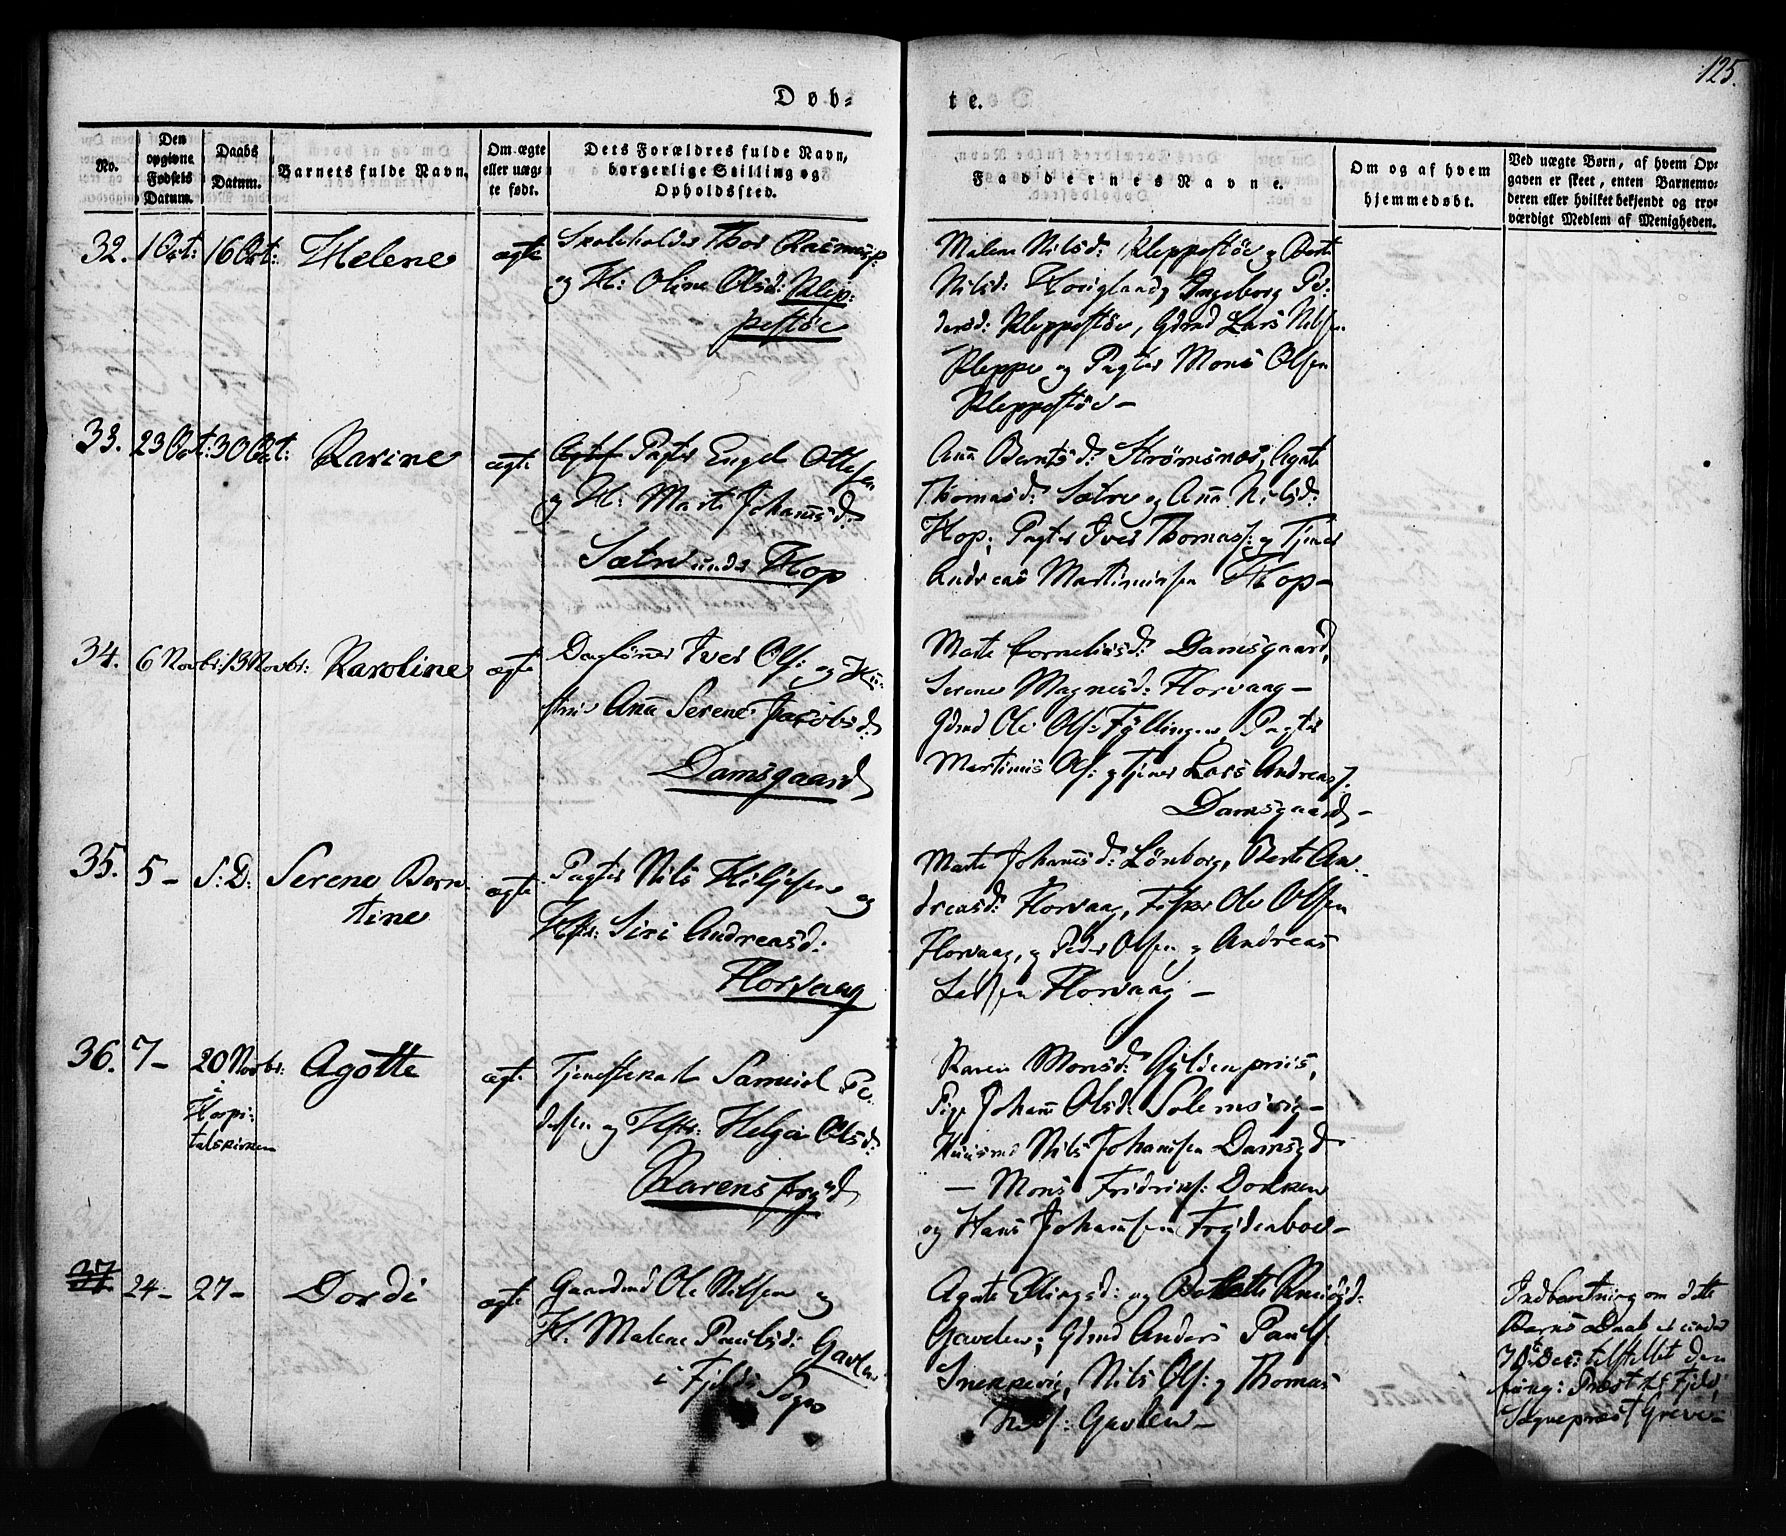 125.
Døb-
te.
No.
Den
opgivne
Fødsels
Datum.
Daabs
Datum.
Barnets fulde Navn.
Om ægte
eller uæg-
te født.
Dets Forældres fulde Navn,
borgerlige Stilling og
Opholdssted.
Faddernes Navne.
Om og af hvem
hjemmedøbt.
Ved uægte Børn, af hvem Op-
gaven er skeet, enten Barnemo-
deren eller hvilket bekjendt og tro-
værdigt Medlem af Menigheden.
32.
1 Oct:
16 Oct:
Helene
ægte
Skoleholder Thor Rasmusf:
og H: Oline Olsd: Klep-
pestøe
Malene Nilsd: Kleppestöe og Berte
Nilsd: Ingeborg Pe-
dersd: Kleppestöe, Gdmd Lars Nilsen
Kleppe og Pagter Mons Olsen
Kleppestöe -
33.
23 Oct:
30 Oct:
Karine
ægte
Pagter Engel Ottesen
og H: Marte Johannsd:
Sætre under Hop
Anna Berntsd: Strömsnes, Agate
Thomasd: Sætre og Anna Nilsd:
Hop; Pagter Iver Thomasf: og Tjener
Andreas Martinusen Hop -
34.
6 Novbr:
13 Novbr:
Karoline
ægte
Daglönner Iver Olf: og Hu-
strue Anna Serene Jacobsd:
Damsgaard
Marte Corneliusd: Damsgaard,
Serene Magnesd: Florvaag -
Gdmd Ole Olf: Fyllingen, Pagter
Martinus Olf: og tjener Lars Andreasf.
Damsgaard -
35.
5 -
S: D:
Serene Bern-
tine
ægte
Pagter Nils Kiljesen og
Hstr: Siri Andreasd:
Florvaag
Marte Johannsd: Lönborg, Berte An-
dreasd: Florvaag, Fisker Ole Olsen
Florvaag, og Peder Olsen og Andreas
Florvaag -
36.
7 -
20 Novbr:
i
Hospi-
talskirken
Agotte
ægte
Tjenestekarl Samuel Pe-
dersen og Hstr: Helga Olsd:
Karens
Karen Monsd: Gyldenpriis,
Pige Johann Olsd: Solemsvig -
Huusmd Nils Johansen Damsgd
- Mons Fridrikf: Dokken
og Hans Johannsen Frydenboe -
37
24 -
27 -
Dordi
ægte
Gaardmd Ole Nilsen og
H. Malene Paulsd: Gavlen
i Fjelds Sogn
Agate Ellingsd: og
Gavlen; Gdmd Anders Paulf.
Snekkevig, Nils Olf: og Thomas
Nilf: Gavlen -
Indberetning om dette
Barns Daab er under
30te Dec: tilstillet den
fung: Præst til Fjeld,
Sognepræst Greve -